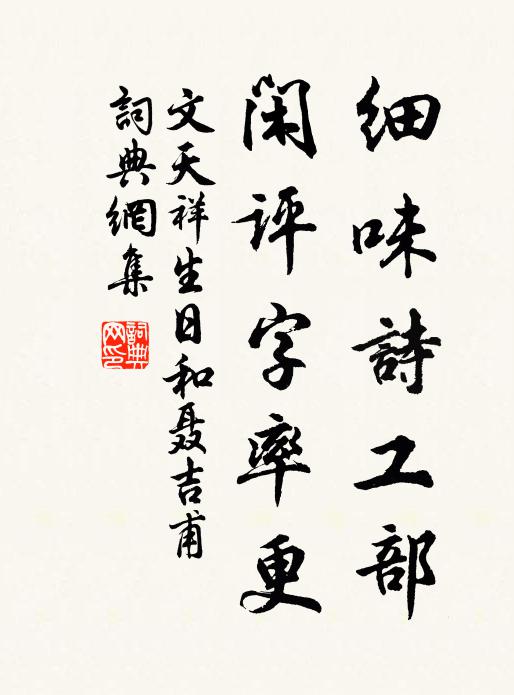 細味詩工部
閑評字率更
文天祥生日和聂吉甫
詞典網集
詞典网印